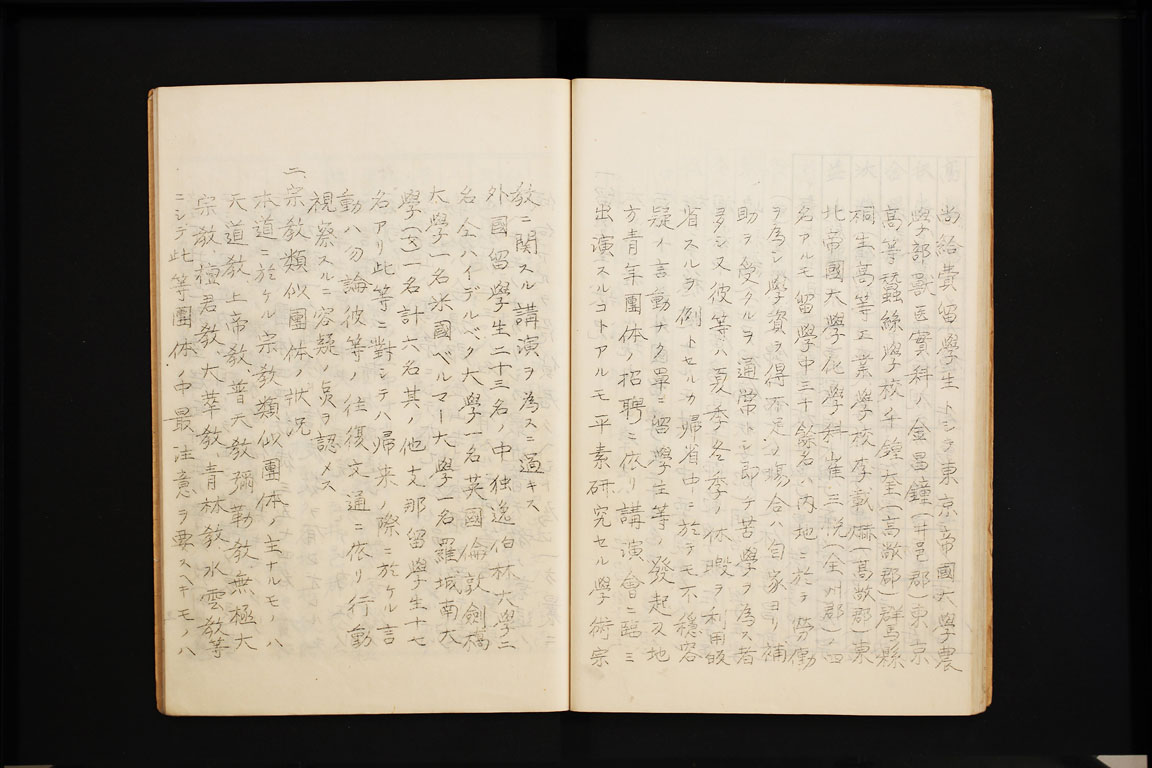 尚給費留學生トシテ東京帝國大學農
學部獸医實科ハ金昌鐘(井邑郡)東京
高等蠶絲學校千鐘奎(高敞郡)群馬縣
桐生高等工業學校李載廉(高敞郡)東
北帝國大學化學科崔三悅(全州郡)ノ四
名アルモ留學中三十餘名ハ内地ニ於テ労働
ヲ為シ學資ヲ得不足ノ場合ハ自家ヨリ補
助ヲ受クルヲ通常トシ即チ苦學ヲ為ス者
多シ又彼等ハ夏季冬季ノ休暇ヲ利用皈
省スルヲ例トセルカ帰省中ニ於テモ不穏容
疑ノ言動ナク單ニ留學生等ノ發起又ハ地
方青年團体ノ招聘ニ依リ講演會ニ臨ミ
出演スルコトアルモ平素研究セル學術宗
教ニ関スル講演ヲ為スニ過キス
外國留學生二十三名ノ中独逸伯林大學二
名仝ハイデルベク大學一名英國倫敦劍橋
大學一名米國ベルマー大學一名羅城南大
學(女)一名計六名其ノ他支那留學生十七
名アリ此等ニ對シテハ帰来ノ際ニ於ケル言
動ハ勿論彼等ノ往復文通ニ依リ行動
視察スルニ容疑ノ点ヲ認メス
二、宗教類似團体ノ狀况
本道ニ於ケル宗教類似團体ノ主ナルモノハ
天道教、上帝教、普天教彌勒教無極大
宗教、檀君教、大華教、青林教、水雲教等
ニシテ此等團体ノ中最注意ヲ要スヘキモノハ